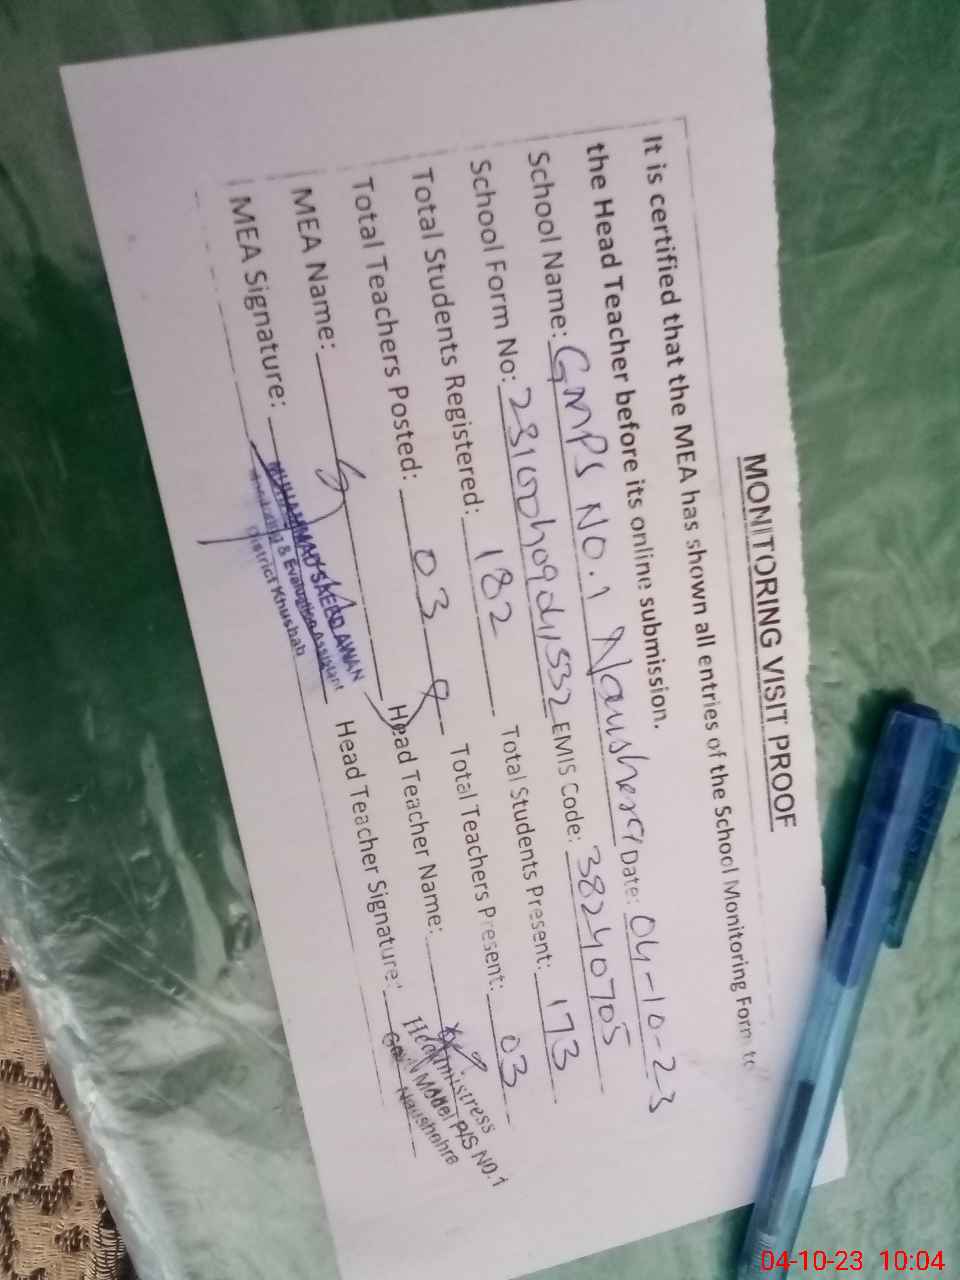 MONITORING VISIT PROOF
It is certified that the MEA has shown all entries of the School Monitoring Form to
the Head Teacher before its online submission.
School Name: GMPS NO.1 Naushera Date: 04-10-23
School Form No: EMIS Code: 38240705
Total Students Registered: 182 Total Students Present: 173
Total Teachers Posted: 03 Total Teachers Present: 03
MEA Name: Head Teacher Name:
MEA Signature: Head Teacher Signature:
MUHAMMAD SAEED AWAN
Monitoring & Evaluation Assistant
District Khushab
Headmistress
Govt Model P/S NO.1
Naushehra
04-10-23 10:04